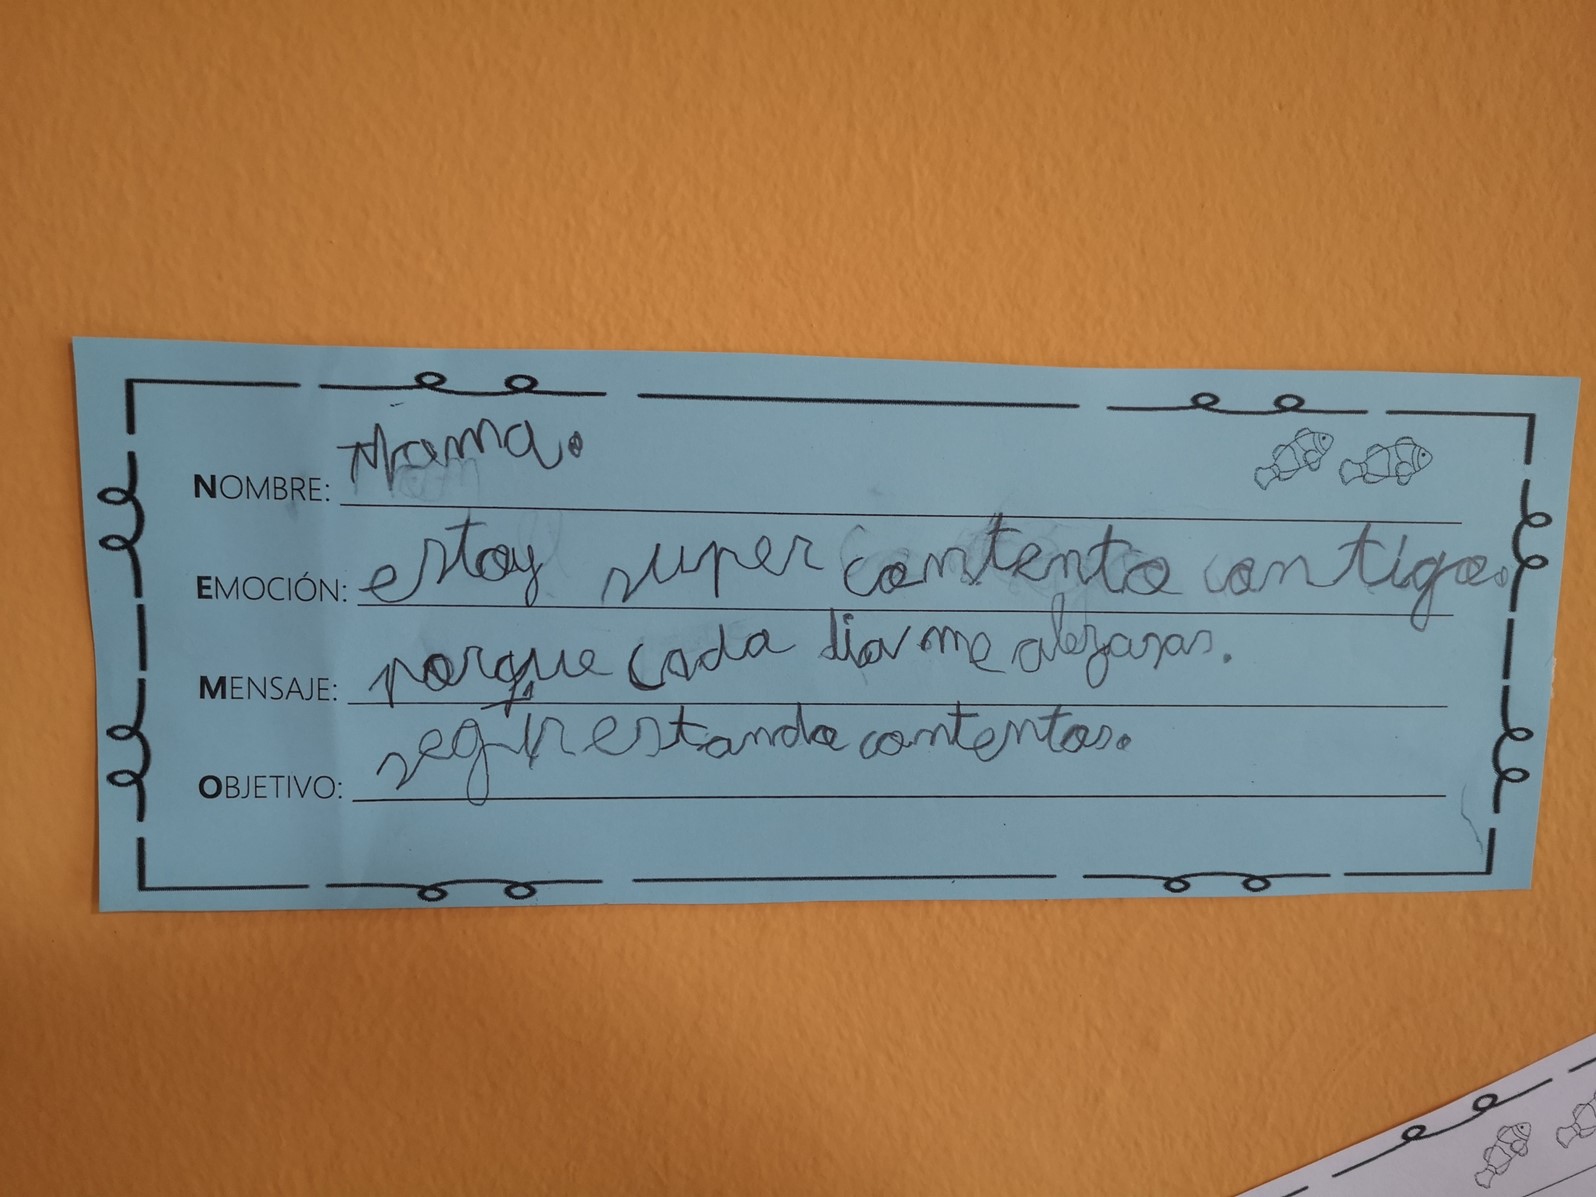 NOMBRE: Mama.
EMOCIÓN: estoy super contento contigo.
MENSAJE: porque cada dia me abrazas.
OBJETIVO: segir estando contentos.